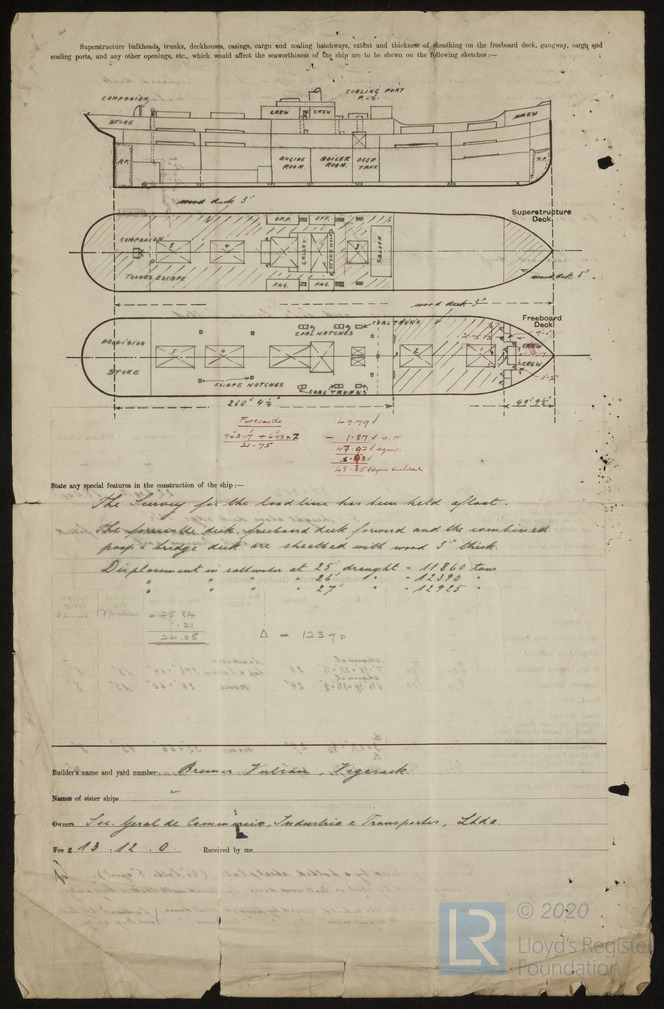 Superstructure bulkheads, trunks, deckhouses, casings, cargo and coaling hatchways, extent and thickness of sheathing on the freeboard deck, gangway, cargo and
coaling ports, and any other openings, etc., which would affect the seaworthiness of the ship are to be shewn on the following sketches:—
COMPANION
COALING PORT
P. & S.
STORE
CREW
CREW
CREW
A.P.
ENGINE
ROOM.
BOILER
ROOM.
DEEP
TANK
F.P.
wood deck 3"
Superstructure
Deck.
OFF.
OFF.
COMPANION
5
4
GALLEY
SALOON
TUNNEL ESCAPE
ENG.
ENG.
wood deck 3"
wood deck 3"
Freeboard
Deck
COAL TRUNK
COAL HATCHES
PROVISION
STORE
5
4
2
CREW
CREW
ESCAPE HATCHES
COAL TRUNKS
260' 4½"
49' 9½"
Forecastle
21.75
49.79
- 1.87
47.92
48.85
State any special features in the construction of the ship:—
The Survey for the load line has been held afloat.
The forecastle deck, freeboard deck forward and the combined
poop & bridge deck are sheathed with wood 3" thick.
Displacement in saltwater at 25' draught = 11860 tons
" " " 26' " " 12390 "
" " " 27' " " 12925 "
= 25.84
.21
26.05
Δ = 12390
Builder's name and yard number Bremer Vulkan, Vegesack.
Names of sister ships
Owners Soc. Geral de Commercio, Industria e Transportes, Ltda.
Fee £ 13 . 12 . 0 Received by me
LR
© 2020
Lloyd's Register
Foundation